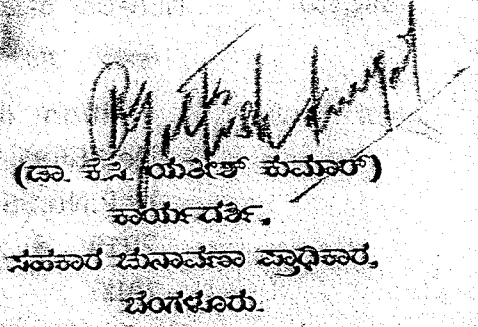 (ಡಾ. ಕೆ.ಸಿ. ಯತೀಶ್ ಕುಮಾರ್)
ಕಾರ್ಯದರ್ಶಿ,
ಸಹಕಾರ ಚುನಾವಣಾ ಪ್ರಾಧಿಕಾರ,
ಬೆಂಗಳೂರು.